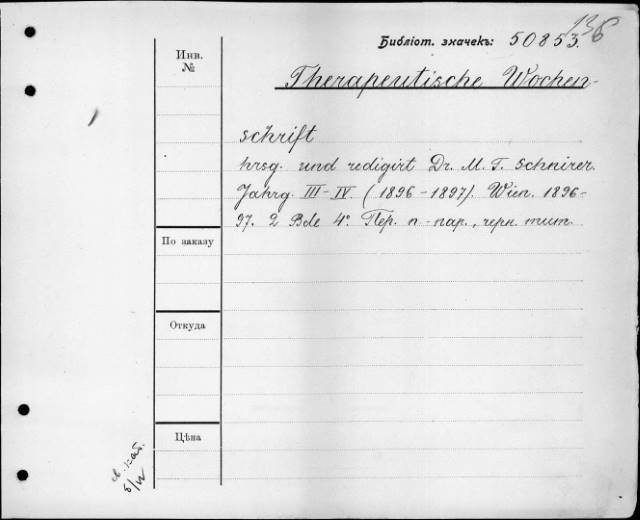 136
Библіот. значекъ: 50853.
Инв.
№
Therapeutische Wochen-
schrift
hrsg. und redigirt Dr. M. T. Schnirer.
Jahrg. III-IV. (1896-1897). Wien. 1896-
97. 2 Bde 4°. Пер. п-пар., черн. тит.
По заказу
Откуда
Цѣна